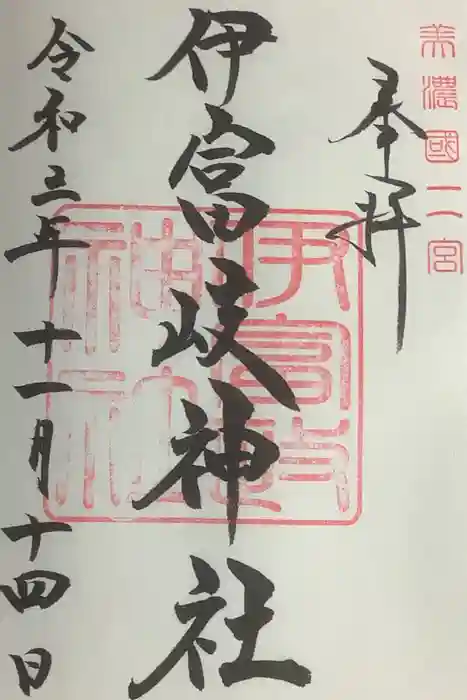 美濃國二宮
奉拝
伊富岐神社
伊富岐
神社
令和三年十一月十四日